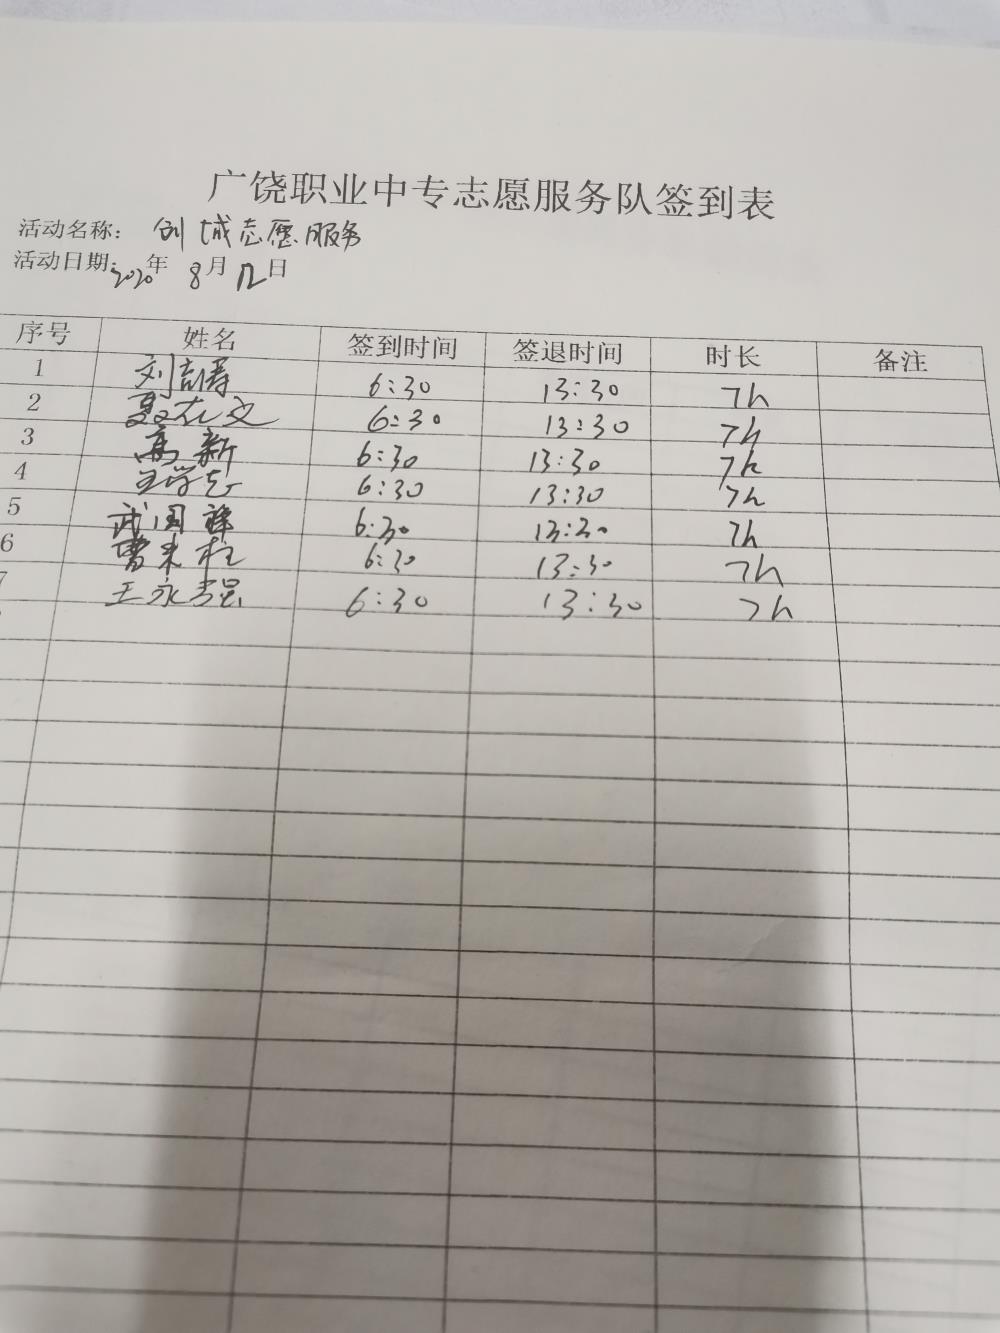 广饶职业中专志愿服务队签到表
活动名称： 创城志愿服务
活动日期：2020年 8月12日
序号 姓名 签到时间 签退时间 时长 备注
1 6:30 13:30 7h
2 6:30 13:30 7h
3 高新 6:30 13:30 7h
4 王学志 6:30 13:30 7h
5 武国 6:30 13:30 7h
6 曹来柱 6:30 13:30 7h
7 王永强 6:30 13:30 7h